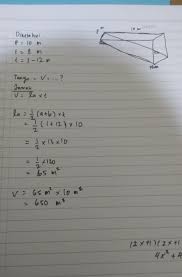 Diketahui
P = 10 m
l = 8 m
t = 1 - 12 m
10 m
Tanya = V ... ?
Jawab
V = La x t
La = 1/2 (a+b) x t
= 1/2 (1+12) x 10
= 1/2 x 13 x 10
= 1/2 x 130
= 65 m²
V = 65 m² x 10 m²
= 650 m³
(2x+1)(2x+1
4x² + 4